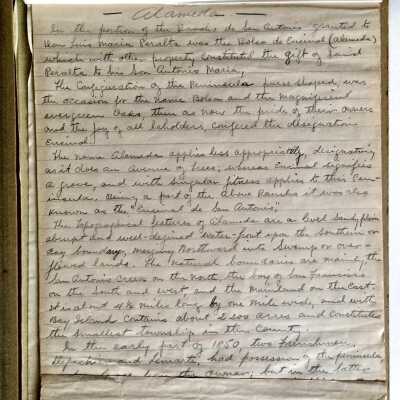 — Alameda —
In the portion of the Rancho de San Antonio granted to
Don Luis Maria Peralta was the Bolsa de Encinal (Alameda)
which with other property constituted the gift of said
Peralta to his son Antonio Maria,
The Configuration of the Peninsula purse shaped, was
the occasion for the name Bolsa and the magnificent
evergreen Oaks, then as now the pride of their owners
and the joy of all beholders, confered the designation
Encinal
The name Alameda applies less appropriately, designating
as it does an Avenue of trees; whereas Encinal signifies
a grove, and with singular fitness applies to this Pen-
insula. Being a part of the above Rancho it was also
known as the "Encinal de San Antonio",
The topographical features of Alameda are a level sandy plain
abrupt and well-defined water-front upon the southern or
bay boundary, merging Northward into Swamp or over-
flowed lands. The natural boundaries are mainly the
San Antonio Creek on the North, the bay of San Francisco
on the South and west and the Mainland on the East.
It is about 4½ miles long by one mile wide, and with
Bay Island Contains about 2200 acres and Constitutes
the smallest Township in the County.
In the early part of 1850, two Frenchmen,
and had possession of the peninsula
but in the latter